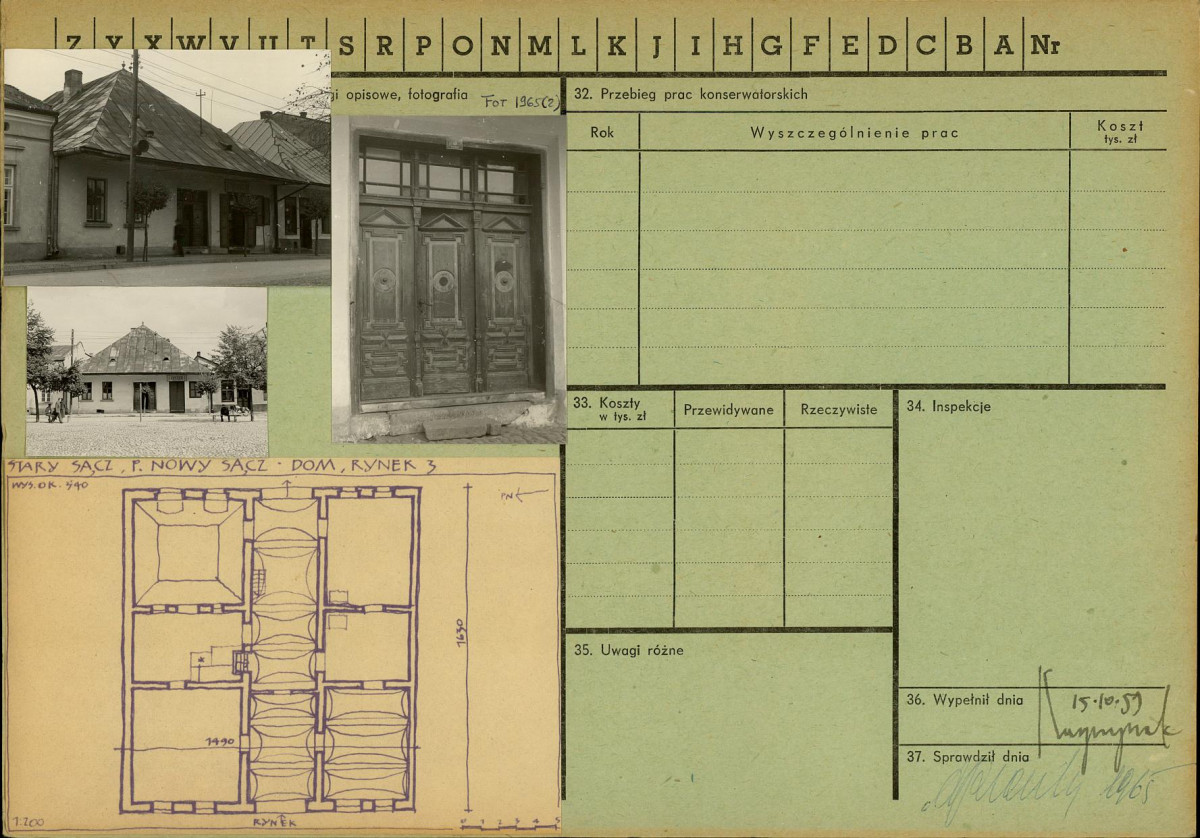 Z Y X W V U T S R P O N M L K J I H G F E D C B A Nr
opisowe, fotografia Fot 1965(2)
32. Przebieg prac konserwatorskich
Rok Wyszczególnienie prac Koszt
tys. zł
33. Koszty
w tys. zł
Przewidywane Rzeczywiste
34. Inspekcje
STARY SĄCZ, P. NOWY SĄCZ · DOM, RYNEK 3
WYS. OK. 540
PN
1690
1490
RYNEK
1:200
0 1 2 3 4 5
35. Uwagi różne
36. Wypełnił dnia 15·10·59
37. Sprawdził dnia 1965